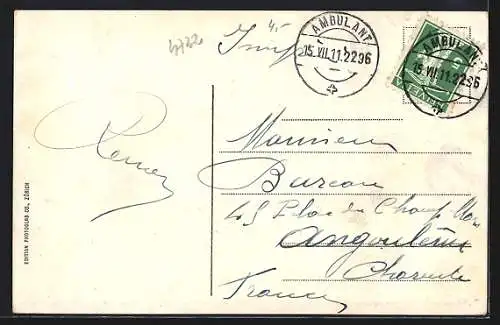 AMBULANT
15.VII.11.2296
4
AMBULANT
15.VII.11.2296
4
HELVETIA
Monsieur
Bureau
45 Place du Champ Mars
Angoulême
Charente
France
EDITION PHOTOGLOB CO., ZÜRICH